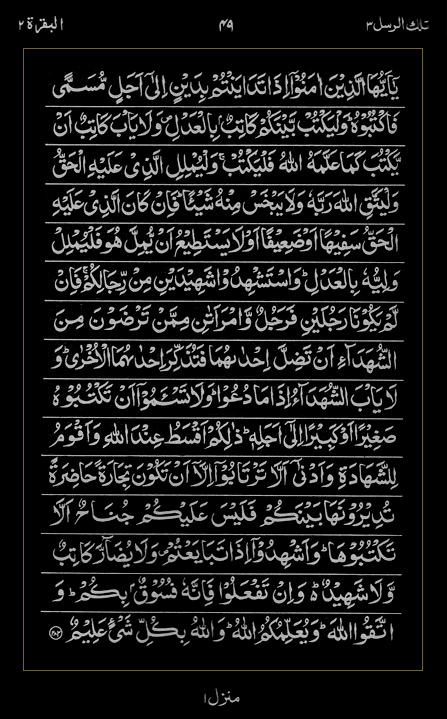 تلك الرسل ٣ ۴۹ البقرة ٢
يٰۤاَيُّهَا الَّذِيْنَ اٰمَنُوْۤا اِذَا تَدَايَنْتُمْ بِدَيْنٍ اِلٰۤى اَجَلٍ مُّسَمًّى
فَاكْتُبُوْهُ ؕ وَلْيَكْتُبْ بَّيْنَكُمْ كَاتِبٌۢ بِالْعَدْلِ ۪ وَلَا يَاْبَ كَاتِبٌ اَنْ
يَّكْتُبَ كَمَا عَلَّمَهُ اللّٰهُ فَلْيَكْتُبْ ۚ وَلْيُمْلِلِ الَّذِيْ عَلَيْهِ الْحَقُّ
وَلْيَتَّقِ اللّٰهَ رَبَّهٗ وَلَا يَبْخَسْ مِنْهُ شَيْـًٔا ؕ فَاِنْ كَانَ الَّذِيْ عَلَيْهِ
الْحَقُّ سَفِيْهًا اَوْ ضَعِيْفًا اَوْ لَا يَسْتَطِيْعُ اَنْ يُّمِلَّ هُوَ فَلْيُمْلِلْ
وَلِيُّهٗ بِالْعَدْلِ ؕ وَاسْتَشْهِدُوْا شَهِيْدَيْنِ مِنْ رِّجَالِكُمْ ۚ فَاِنْ
لَّمْ يَكُوْنَا رَجُلَيْنِ فَرَجُلٌ وَّامْرَاَتٰنِ مِمَّنْ تَرْضَوْنَ مِنَ
الشُّهَدَآءِ اَنْ تَضِلَّ اِحْدٰىهُمَا فَتُذَكِّرَ اِحْدٰىهُمَا الْاُخْرٰى ؕ وَ
لَا يَاْبَ الشُّهَدَآءُ اِذَا مَا دُعُوْا ؕ وَلَا تَسْـَٔمُوْۤا اَنْ تَكْتُبُوْهُ
صَغِيْرًا اَوْ كَبِيْرًا اِلٰۤى اَجَلِهٖ ؕ ذٰلِكُمْ اَقْسَطُ عِنْدَ اللّٰهِ وَاَقْوَمُ
لِلشَّهَادَةِ وَاَدْنٰۤى اَلَّا تَرْتَابُوْۤا اِلَّاۤ اَنْ تَكُوْنَ تِجَارَةً حَاضِرَةً
تُدِيْرُوْنَهَا بَيْنَكُمْ فَلَيْسَ عَلَيْكُمْ جُنَاحٌ اَلَّا
تَكْتُبُوْهَا ؕ وَاَشْهِدُوْۤا اِذَا تَبَايَعْتُمْ ۪ وَلَا يُضَآرَّ كَاتِبٌ
وَّلَا شَهِيْدٌ ؕ۬ وَاِنْ تَفْعَلُوْا فَاِنَّهٗ فُسُوْقٌۢ بِكُمْ ؕ وَ
اتَّقُوا اللّٰهَ ؕ وَيُعَلِّمُكُمُ اللّٰهُ ؕ وَاللّٰهُ بِكُلِّ شَيْءٍ عَلِيْمٌ ۝۲۸۲
منزل ١